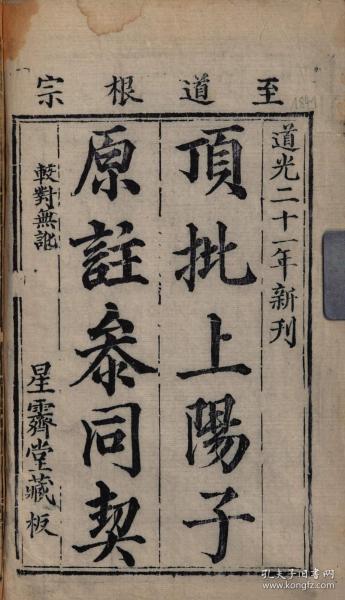 至道根宗
1841
道光二十一年新刊
頂批上陽子
原註叅同契
較對無訛
星齋堂藏板
孔夫子旧书网